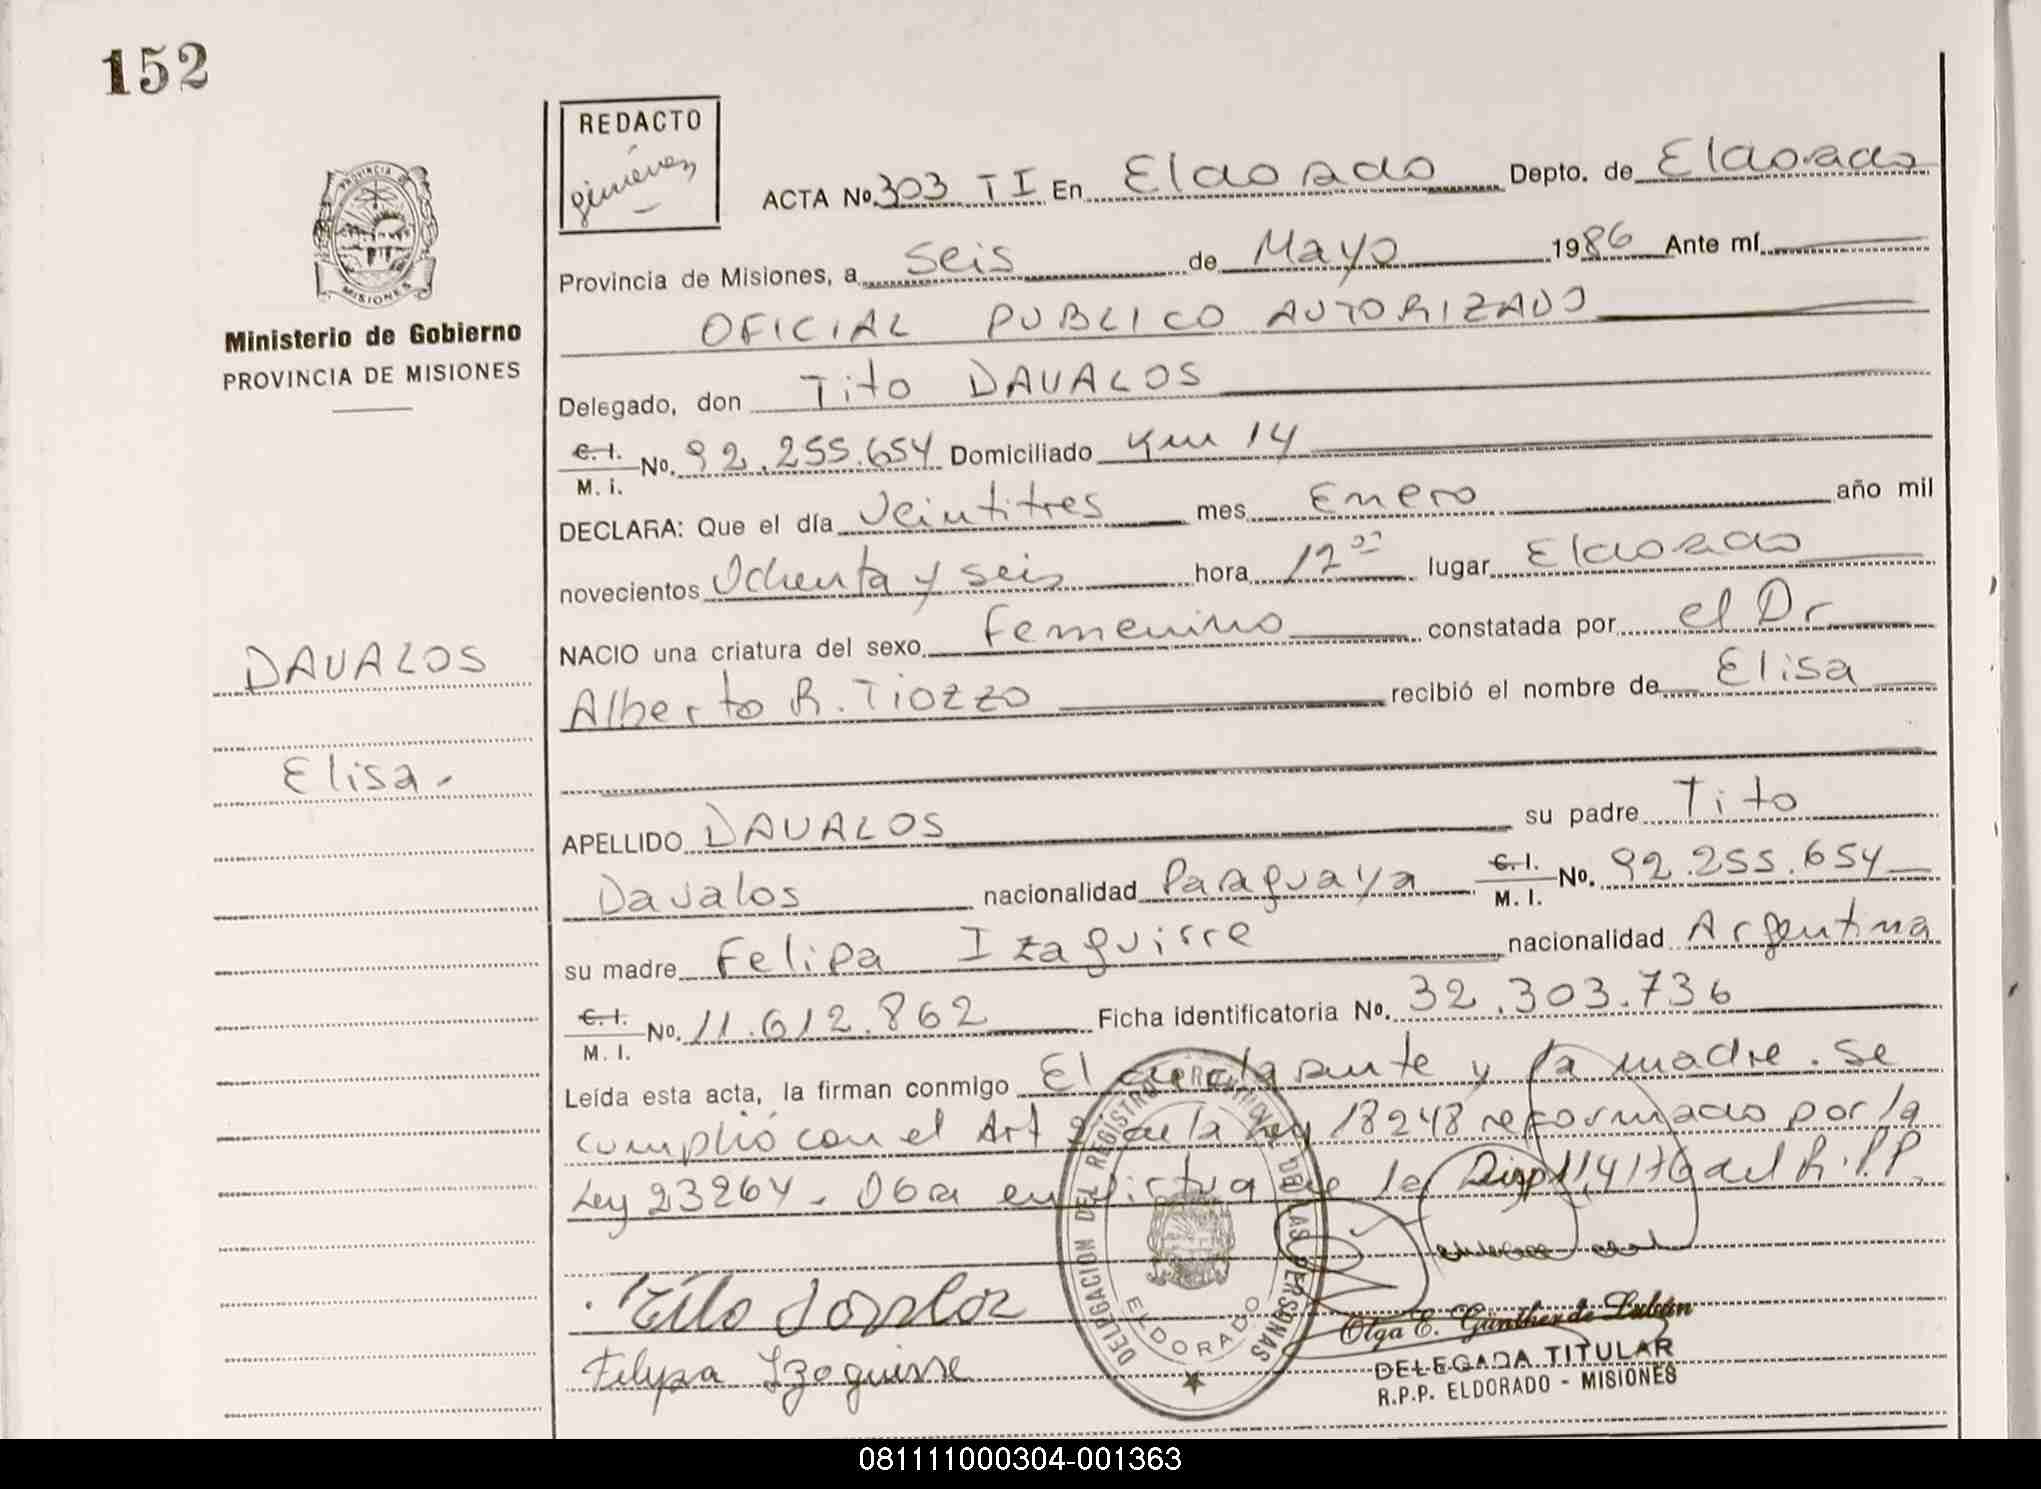 152
REDACTO
giménez
PROVINCIA DE
MISIONES
Ministerio de Gobierno
PROVINCIA DE MISIONES
ACTA No. 303 TI En Eldorado Depto. de Eldorado
Provincia de Misiones, a seis de Mayo 1986 Ante mí
OFICIAL PUBLICO AUTORIZADO
Delegado, don Tito DAVALOS
C. I. M. i. No. 92.255.654 Domiciliado Km 14
DECLARA: Que el día Veintitres mes Enero año mil
novecientos Ochenta y seis hora 12 00 lugar Eldorado
NACIO una criatura del sexo femenino constatada por el Dr
Alberto R. TIOZZO recibió el nombre de Elisa
APELLIDO DAVALOS su padre Tito
Davalos nacionalidad Paraguaya C. I. M. I. No. 92.255.654
su madre Felipa Izaguirre nacionalidad Argentina
C. I. M. I. No. 11.612.862 Ficha identificatoria No. 32.303.736
Leída esta acta, la firman conmigo El declarante y la madre. Se
cumplió con el Art 2 de la Ley 18248 reformado por la
Ley 23264 - Obra en virtud de la Disp 11/4/76 del R.P.P.
DAVALOS
Elisa.-
Tito Davalos
Felipa Izaguirre
DELEGACION DEL REGISTRO PROVINCIAL DE LAS PERSONAS
ELDORADO
Olga E. Günther de Lubán
DELEGADA TITULAR
R.P.P. ELDORADO - MISIONES
081111000304-001363